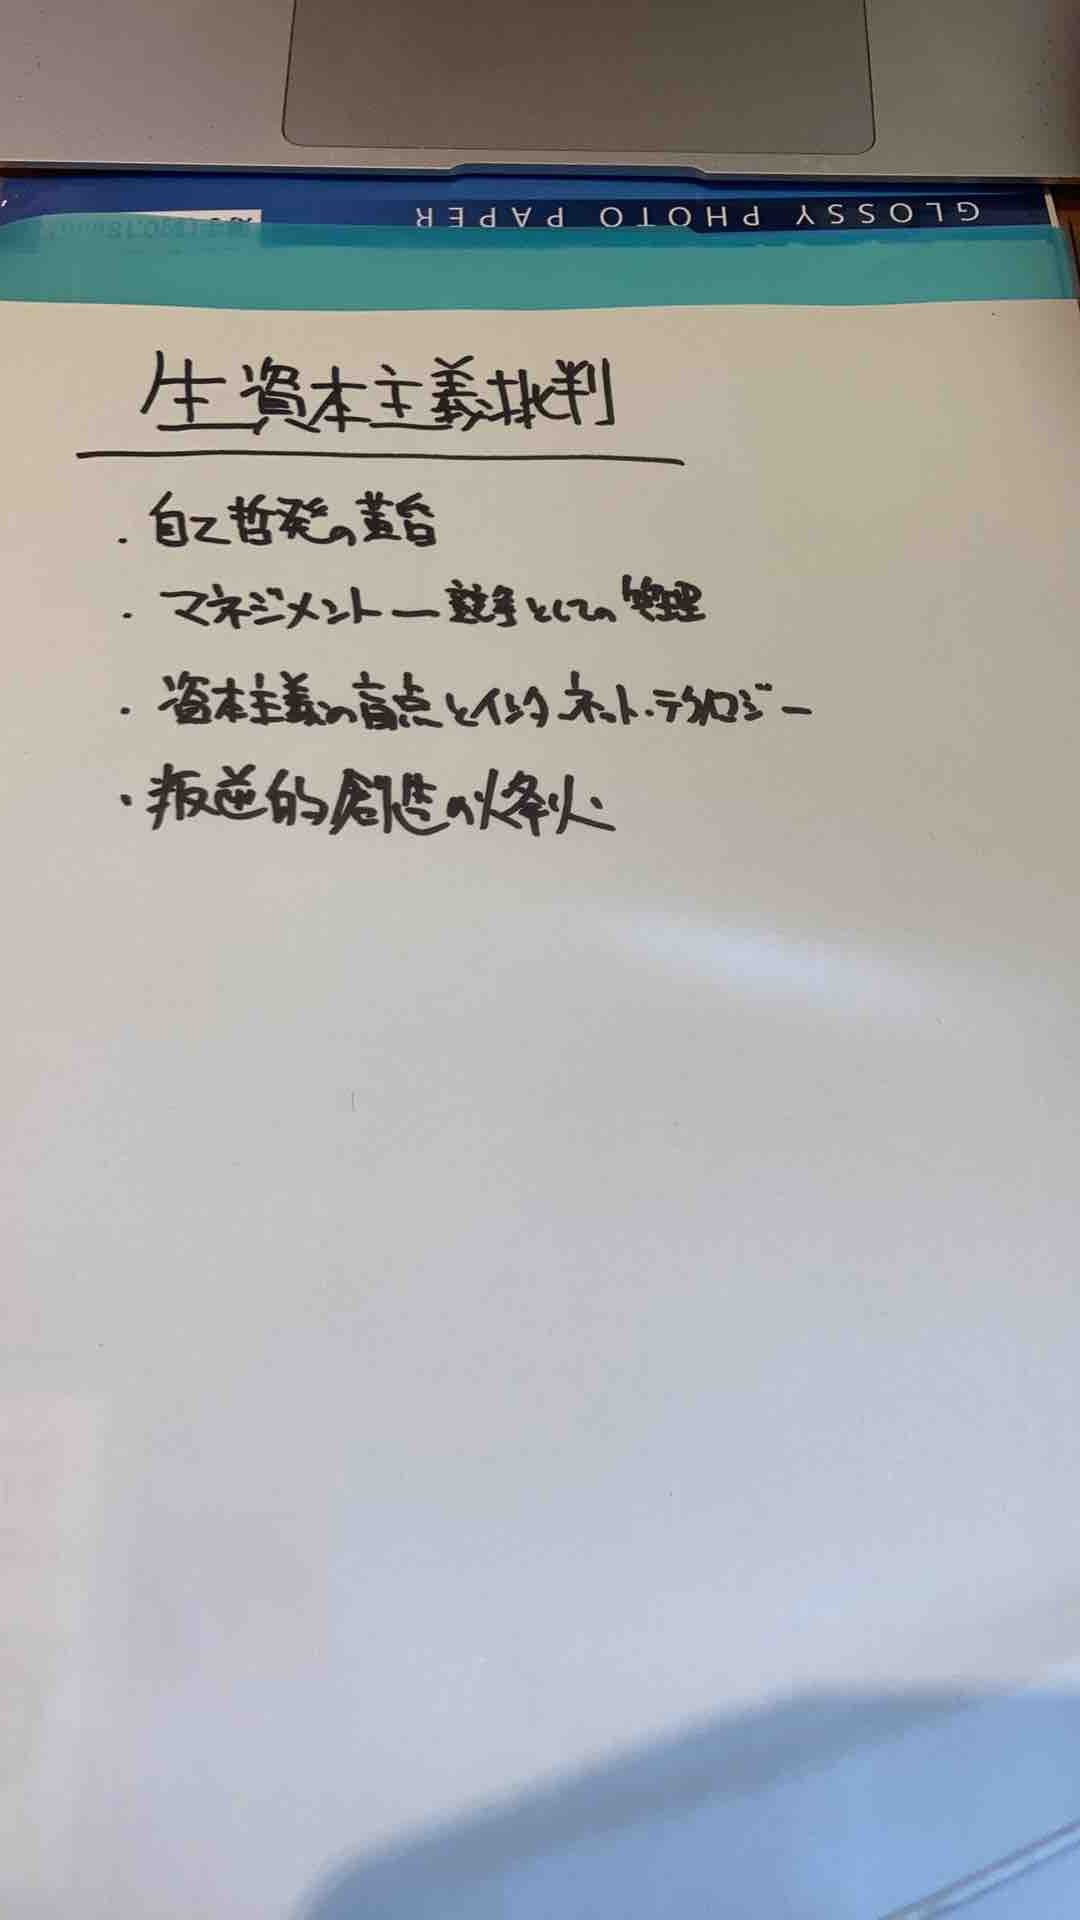 GLOSSY PHOTO PAPER
生資本主義批判
・自己哲発の黄昏
・マネジメントー競争としての管理
・資本主義の盲点とインタネット・テクノロジー
・叛逆的創造の烽火